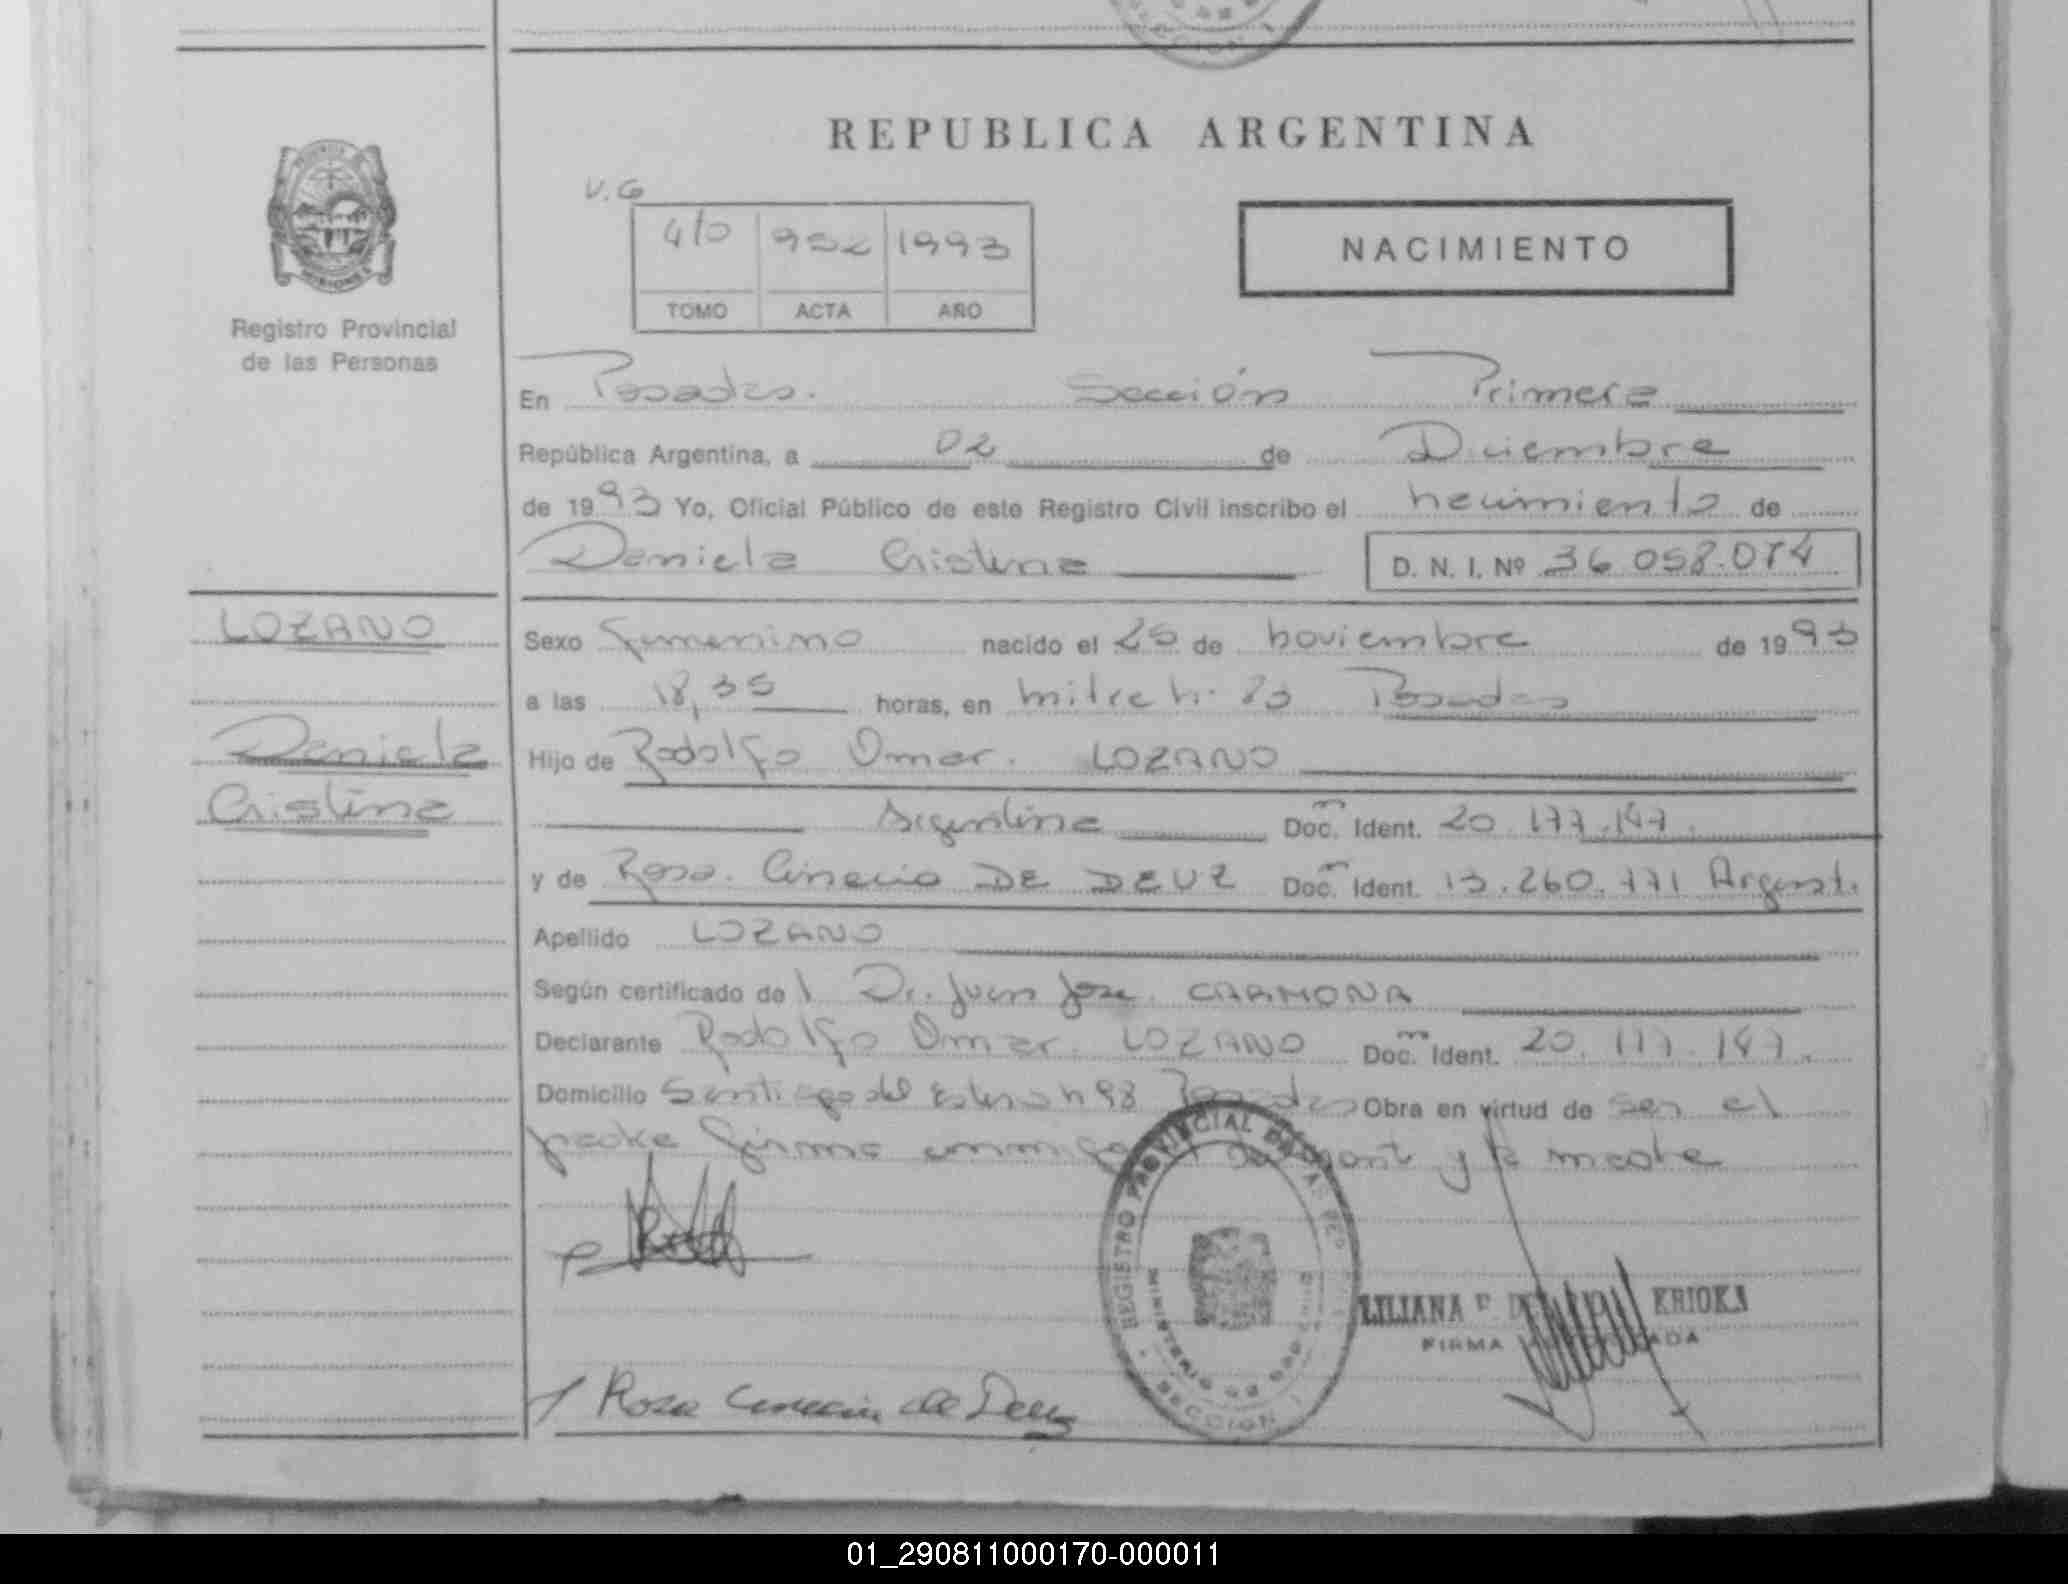 REPUBLICA ARGENTINA
V.G
4to 952 1993
TOMO ACTA AÑO
NACIMIENTO
Registro Provincial
de las Personas
En Posadas. Sección Primera
República Argentina, a 02 de Diciembre
de 1993 Yo, Oficial Público de este Registro Civil inscribo el nacimiento de
Daniela Cristina D. N. I. Nº 36.058.074
LOZANO
Daniela
Cristina
Sexo femenino nacido el 25 de noviembre de 1993
a las 18,35 horas, en mitre n. 83 Posadas
Hijo de Rodolfo Omar. LOZANO
Argentina Doc. Ident. 20.177.147.
y de Rosa DE DEUZ Doc. Ident. 13.260.771 Argent.
Apellido LOZANO
Según certificado de l Dr. Juan Jose CARMONA
Declarante Rodolfo Omar. LOZANO Doc. Ident. 20.177.147.
Domicilio Santiago del Estero n 98 Posadas Obra en virtud de ser el
padre firma y la madre
REGISTRO PROVINCIAL DE LAS PER
MINISTERIO DE
SECCION I
LILIANA KRIOKA
FIRMA
Rosa de Deuz
01_290811000170-000011